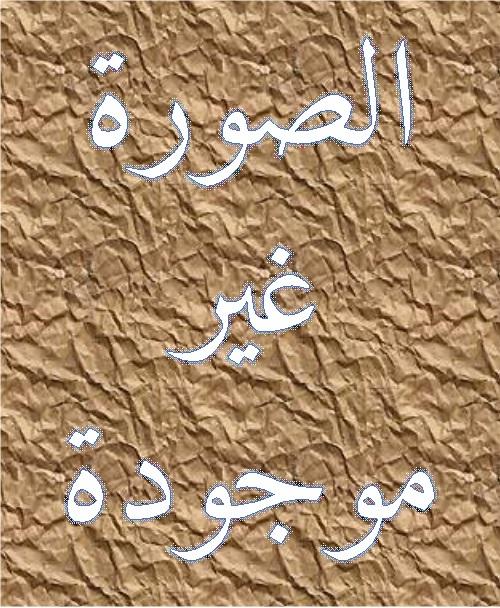 الصورة
غير
موجودة